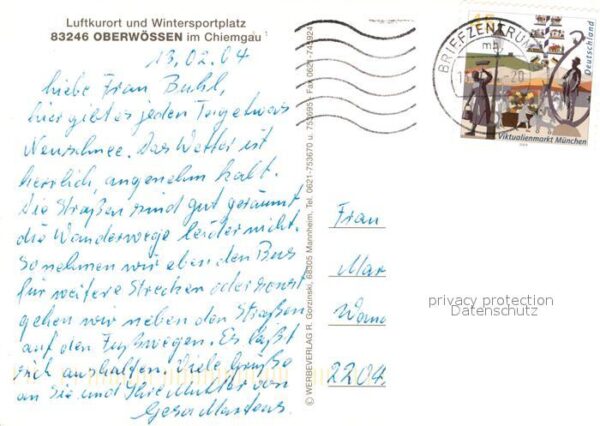 Luftkurort und Wintersportplatz
83246 OBERWÖSSEN im Chiemgau
13.02.04
liebe Frau Buhl,
hier gibt es jeden Tag etwas
Neuschnee. Das Wetter ist
herrlich, angenehm kalt.
Die Straßen sind gut geräumt
die Wanderwege leider nicht.
So nehmen wir eben den Bus
für weitere Strecken oder sonst
gehen wir neben den Straßen
auf den Fußwegen. Es läßt
sich aushalten. Viele Grüße
an Sie und Ihre Mutter von
© WERBEVERLAG R. Gorzinski, 68305 Mannheim, Tel. 0621-753670 u.
BRIEFZENTRUM
Deutschland
Viktualienmarkt München
Frau
Mar
2204
privacy protection
Datenschutz